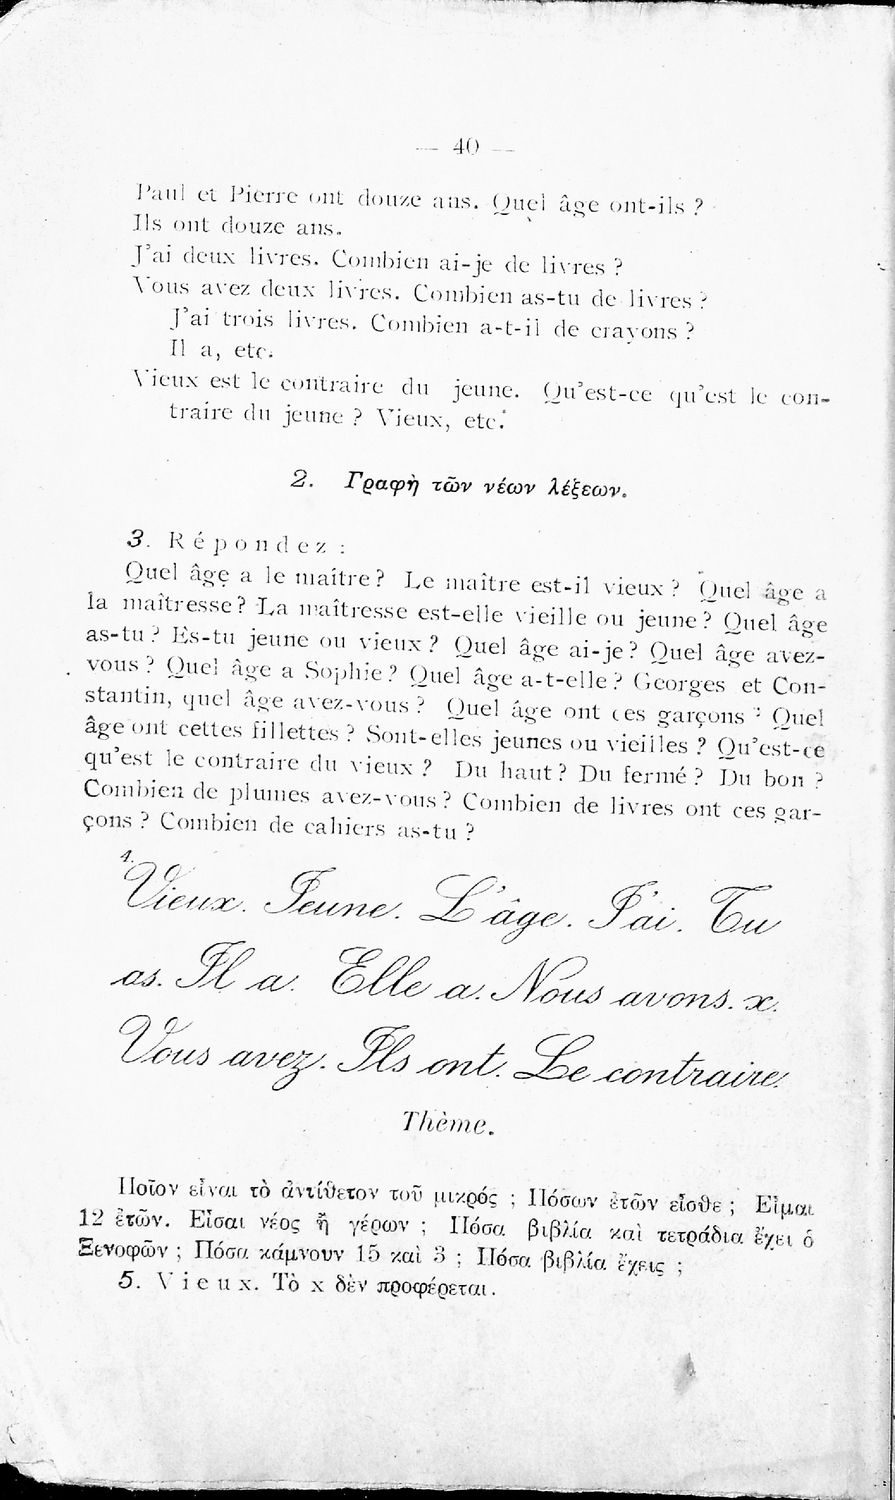 — 40 —
Paul et Pierre ont douze ans. Quel âge ont-ils ?
Ils ont douze ans.
J'ai deux livres. Combien ai-je de livres ?
Vous avez deux livres. Combien as-tu de livres ?
J'ai trois livres. Combien a-t-il de crayons ?
Il a, etc.
Vieux est le contraire du jeune. Qu'est-ce qu'est le con-
traire du jeune ? Vieux, etc.
2. Γραφὴ τῶν νέων λέξεων.
3. Répondez :
Quel âge a le maître ? Le maître est-il vieux ? Quel âge a
la maîtresse ? La maîtresse est-elle vieille ou jeune ? Quel âge
as-tu ? Es-tu jeune ou vieux ? Quel âge ai-je ? Quel âge avez-
vous ? Quel âge a Sophie ? Quel âge a-t-elle ? Georges et Con-
stantin, quel âge avez-vous ? Quel âge ont ces garçons ? Quel
âge ont cettes fillettes ? Sont-elles jeunes ou vieilles ? Qu'est-ce
qu'est le contraire du vieux ? Du haut ? Du fermé ? Du bon ?
Combien de plumes avez-vous ? Combien de livres ont ces gar-
çons ? Combien de cahiers as-tu ?
4.
Vieux. Jeune. L'âge. J'ai. Tu
as. Il a. Elle a. Nous avons. x.
Vous avez. Ils ont. Le contraire.
Thème.
Ποῖον εἶναι τὸ ἀντίθετον τοῦ μικρός ; Πόσων ἐτῶν εἶσθε ; Εἶμαι
12 ἐτῶν. Εἶσαι νέος ἢ γέρων ; Πόσα βιβλία καὶ τετράδια ἔχει ὁ
Ξενοφῶν ; Πόσα κάμνουν 15 καὶ 3 ; Πόσα βιβλία ἔχεις ;
5. Vieux. Τὸ x δὲν προφέρεται.